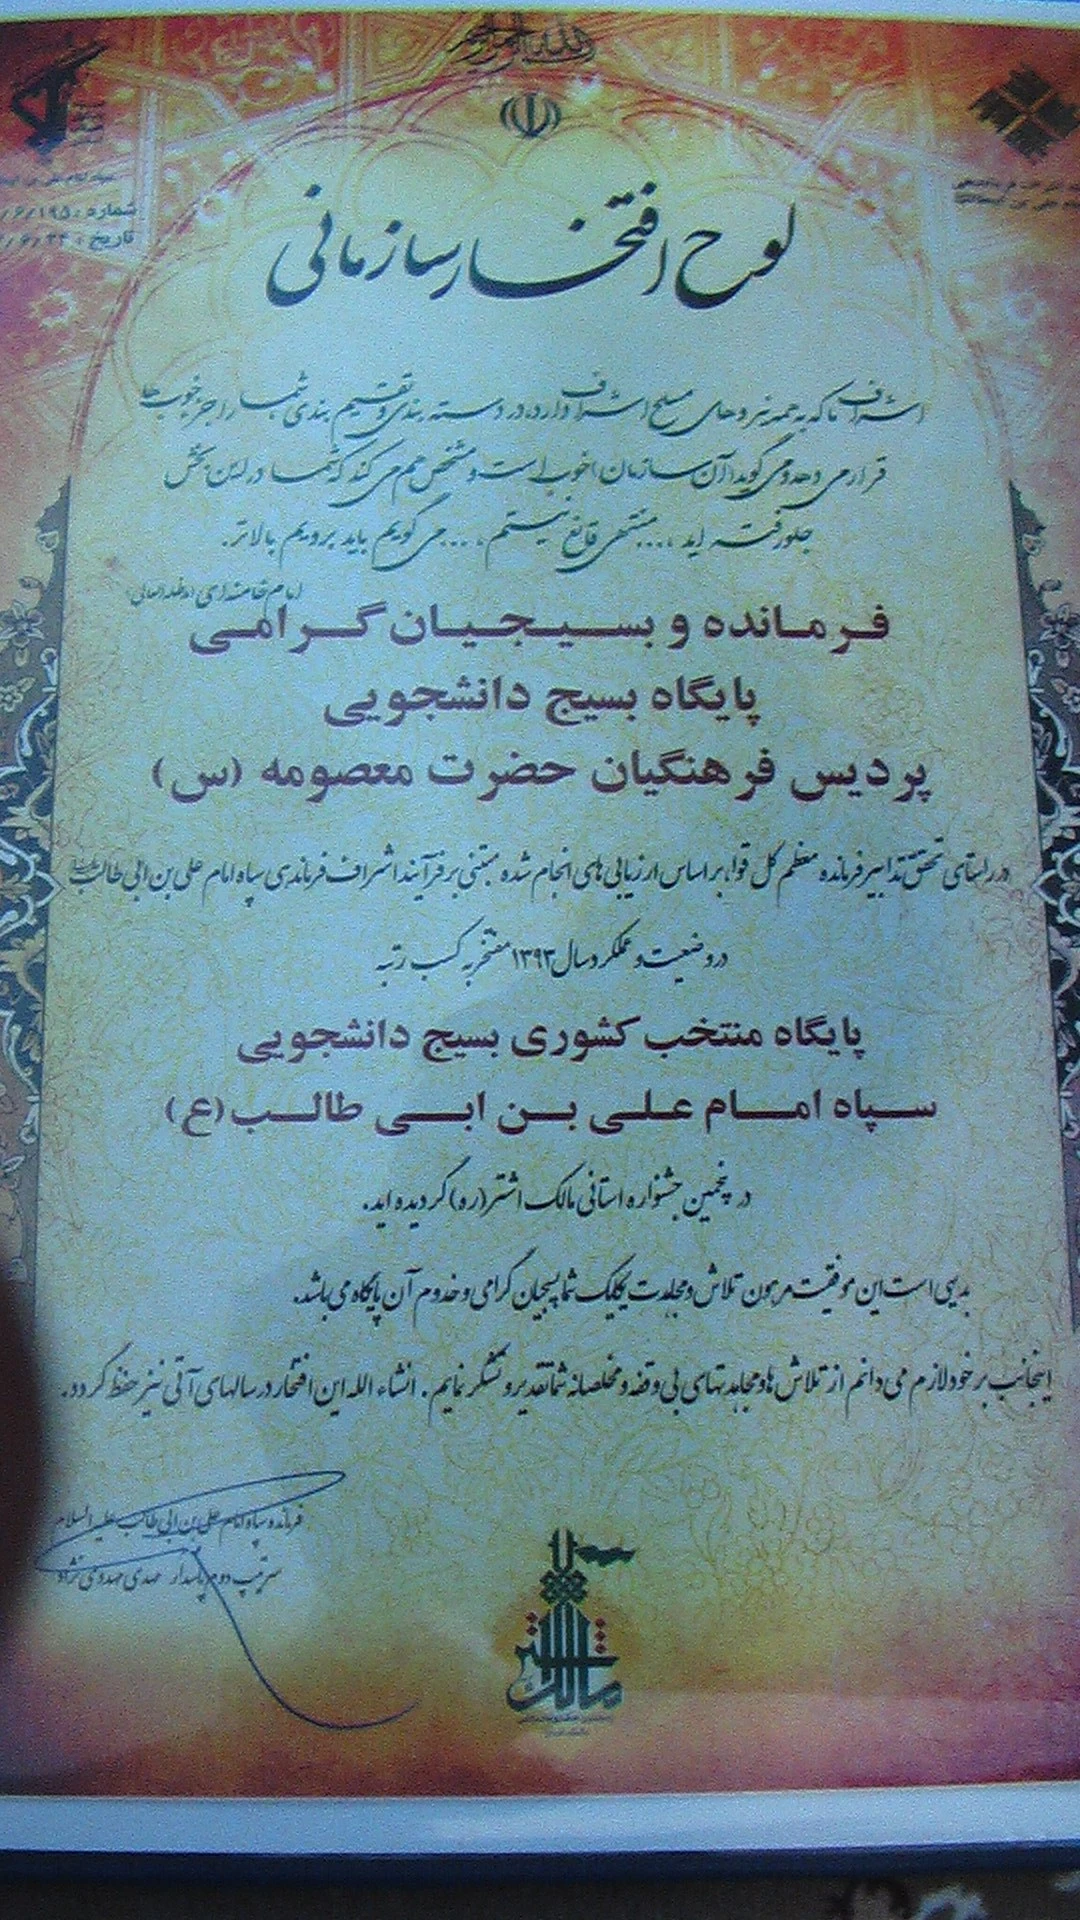 بسم الله الرحمن الرحیم
شماره : ۶/۱۹۵/
تاریخ : ۶/۲۴/
لوح افتخار سازمانی
اشراف ما که به همه نیروهای مسلح اشراف دارد، در دسته بندی و تقسیم بندی شما را جزء خوب ها
قرار می دهد و می گوید آن سازمان خوب است و مشخص هم می کند که شما در این بخش
جلو رفته اید .... منتهی قانع نیستم .... می گوییم باید برویم بالاتر.
امام خامنه ای (مدظله العالی)
فرمانده و بسیجیان گرامی
پایگاه بسیج دانشجویی
پردیس فرهنگیان حضرت معصومه (س)
در راستای تحقق تدابیر فرمانده معظم کل قوا، بر اساس ارزیابی های انجام شده مبتنی بر فرآیند اشراف فرماندهی سپاه امام علی بن ابی طالب
در وضعیت و عملکرد سال ۱۳۹۳ مفتخر به کسب رتبه
پایگاه منتخب کشوری بسیج دانشجویی
سپاه امام علی بن ابی طالب (ع)
در پنجمین جشنواره استانی مالک اشتر (ره) گردیده اید.
بدیهی است این موفقیت مرهون تلاش و مجاهدت یکایک شما بسیجیان گرامی و خدوم آن پایگاه می باشد.
اینجانب بر خود لازم می دانم از تلاش ها و مجاهدتهای بی وقفه و مخلصانه شما تقدیر و تشکر نمایم. انشاء الله این افتخار در سالهای آتی نیز حفظ گردد.
فرمانده سپاه امام علی بن ابی طالب علیه السلام
سرتیپ دوم پاسدار مهدی مهدوی نژاد
مالک اشتر